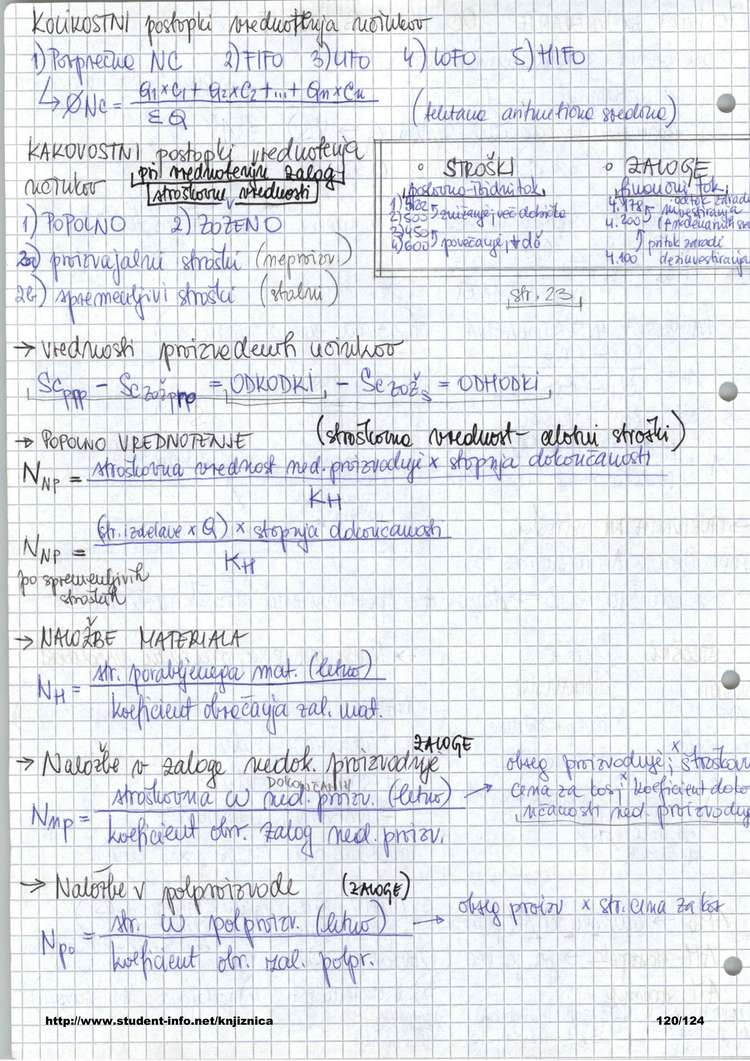 KOLIKOSTNI postopki vrednotenja učinkov
1) Povprečne NC 2) FIFO 3) LIFO 4) LOFO 5) HIFO
↳ ØNC = Q1×C1 + Q2×C2 + ... + Qn×Cn / ΣQ (tehtana aritmetična sredina)
KAKOVOSTNI postopki vrednotenja
učinkov pri vrednotenju zalog
stroškovni vrednosti
1) POPOLNO 2) ZOŽENO
2a) proizvajalni stroški (neproizv.)
2b) spremenljivi stroški (stalni)
• STROŠKI
poslovno-izidni tok
2) 500 znižanje, več dobička
3) 450
4) 600 povečanje, ↓ do
• ZALOGE
finančni tok
4.178 odtok zaradi
4.200 investiranja
pritok zaradi
4.100 dezinvestiranja
str. 23
→ Vrednosti proizvedenih učinkov
Sc ppp − Sc zož ppp = ODKODKI − Sc zož s = ODHODKI
→ POPOLNO VREDNOTENJE (stroškovna vrednost - celotni stroški)
N NP = stroškovna vrednost ned. proizvodnje × stopnja dokončanosti / KH
N NP = (str. izdelave × Q) × stopnja dokončanosti / KH
po spremenljivih
stroških
→ NALOŽBE MATERIALA
NH = str. porabljenega mat. (letno) / koeficient obračanja zal. mat.
→ Naložbe v zaloge nedok. proizvodnje ZALOGE
Nnp = stroškovna W ned. proizv. (letno) / koeficient obr. zalog ned. proizv.
→ obseg proizvodnje × stroškovna
cena za kos × koeficient doko
nčanosti ned. proizvodnje
→ Naložbe v polproizvode (ZALOGE)
Npo = str. W polproizv. (letno) / koeficient obr. zal. polpr.
→ obseg proizv × str. cena za kos
http://www.student-info.net/knjiznica 120/124